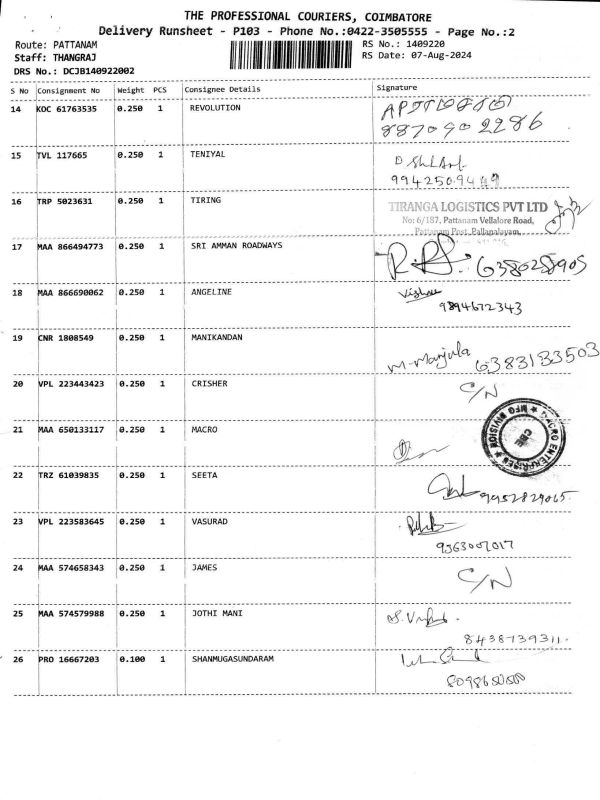 THE PROFESSIONAL COURIERS, COIMBATORE
Delivery Runsheet - P103 - Phone No.:0422-3505555 - Page No.:2
Route: PATTANAM RS No.: 1409220
Staff: THANGRAJ RS Date: 07-Aug-2024
DRS No.: DCJB140922002
S No Consignment No Weight PCS Consignee Details Signature
14 KOC 61763535 0.250 1 REVOLUTION
8870902286
15 TVL 117665 0.250 1 TENIYAL
16 TRP 5023631 0.250 1 TIRING TIRANGA LOGISTICS PVT LTD
No: 6/187, Pattanam Vellalore Road,
Pattanam Post, Pallapalayam,
17 MAA 866494773 0.250 1 SRI AMMAN ROADWAYS
6380258905
18 MAA 866690062 0.250 1 ANGELINE
9894672343
19 CNR 1808549 0.250 1 MANIKANDAN
M-Manjula 6383133503
20 VPL 223443423 0.250 1 CRISHER C/N
21 MAA 650133117 0.250 1 MACRO
MACRO ENTERPRISES ★ MFG DIVISION ★
CBE
22 TRZ 61039835 0.250 1 SEETA
9952829065
23 VPL 223583645 0.250 1 VASURAD
9363007017
24 MAA 574658343 0.250 1 JAMES C/N
25 MAA 574579988 0.250 1 JOTHI MANI
8438739311.
26 PRO 16667203 0.100 1 SHANMUGASUNDARAM